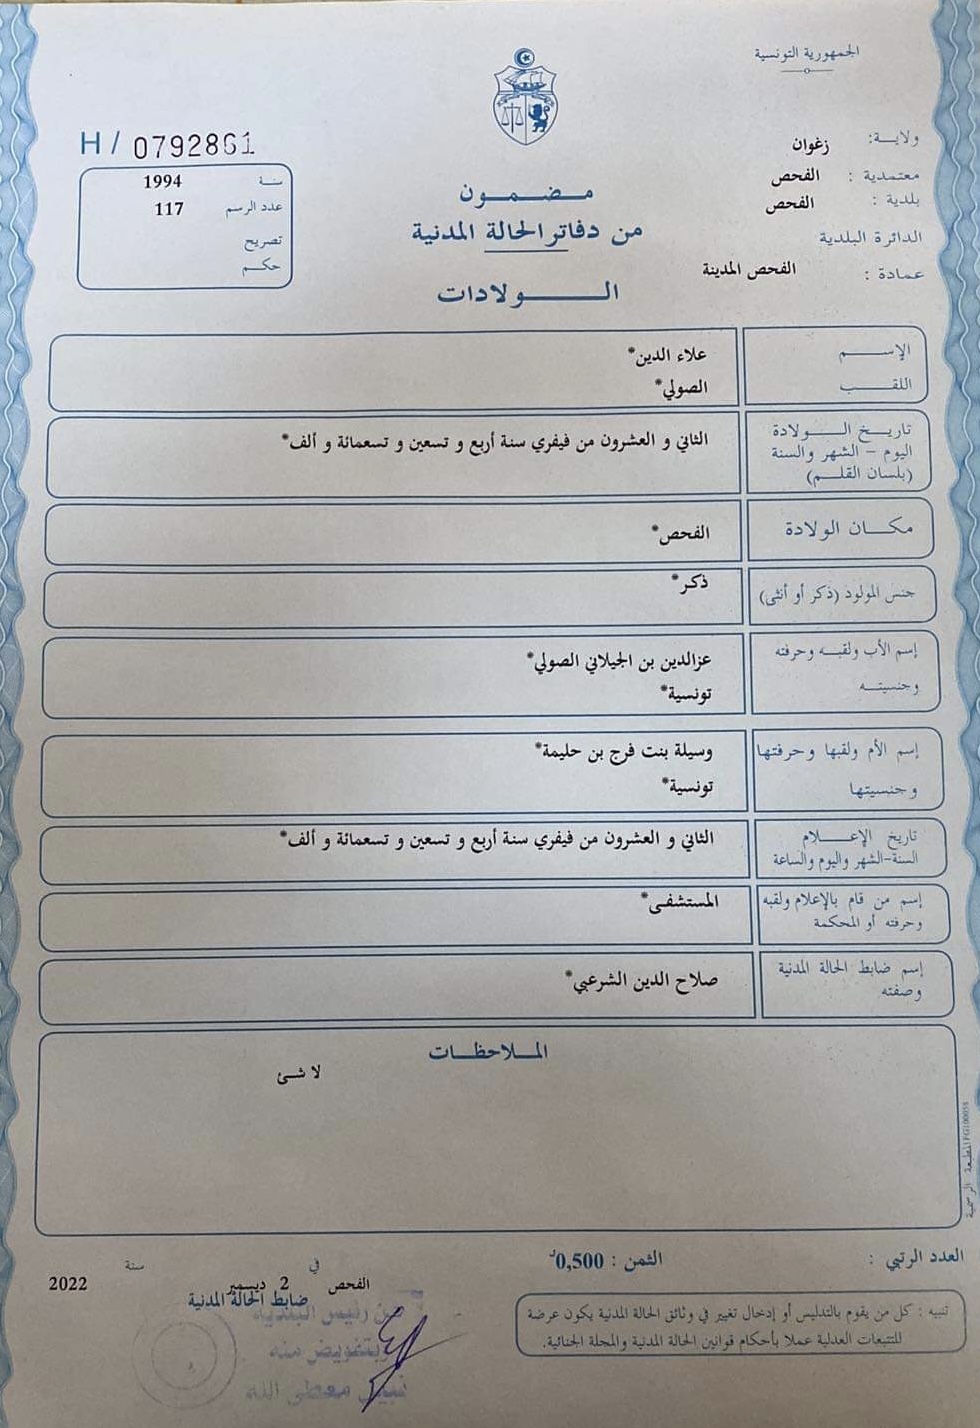 الجمهورية التونسية
ولاية: زغوان
معتمدية : الفحص
بلدية : الفحص
الدائرة البلدية
عمادة : الفحص المدينة
H/ 0792861
سنة 1994
عدد الرسم 117
تصريح
حكم
مضمون
من دفاتر الحالة المدنية
الولادات
الإسم علاء الدين*
اللقب الصولي*
تاريخ الولادة
اليوم - الشهر والسنة
(بلسان القلم)
الثاني و العشرون من فيفري سنة أربع و تسعين و تسعمائة و ألف*
مكان الولادة الفحص*
جنس المولود (ذكر أو أنثى) ذكر*
إسم الأب ولقبه وحرفته عزالدين بن الجيلاني الصولي*
وجنسيته تونسية*
إسم الأم ولقبها وحرفتها وسيلة بنت فرج بن حليمة*
وجنسيتها تونسية*
تاريخ الإعلام الثاني و العشرون من فيفري سنة أربع و تسعين و تسعمائة و ألف*
السنة-الشهر واليوم والساعة
إسم من قام بالإعلام ولقبه المستشفى*
وحرفته أو المحكمة
إسم ضابط الحالة المدنية صلاح الدين الشرعبي*
وصفته
الملاحظات
لا شئ
المطبعة الرسمية
العدد الرتبي : الثمن : 0,500د
الفحص في 2 ديسمبر سنة 2022
ضابط الحالة المدنية
عن رئيس البلدية
وبتفويض منه
نبيل معطى الله
تنبيه : كل من يقوم بالتدليس أو إدخال تغيير في وثائق الحالة المدنية يكون عرضة
للتتبعات العدلية عملا بأحكام قوانين الحالة المدنية والمجلة الجنائية.